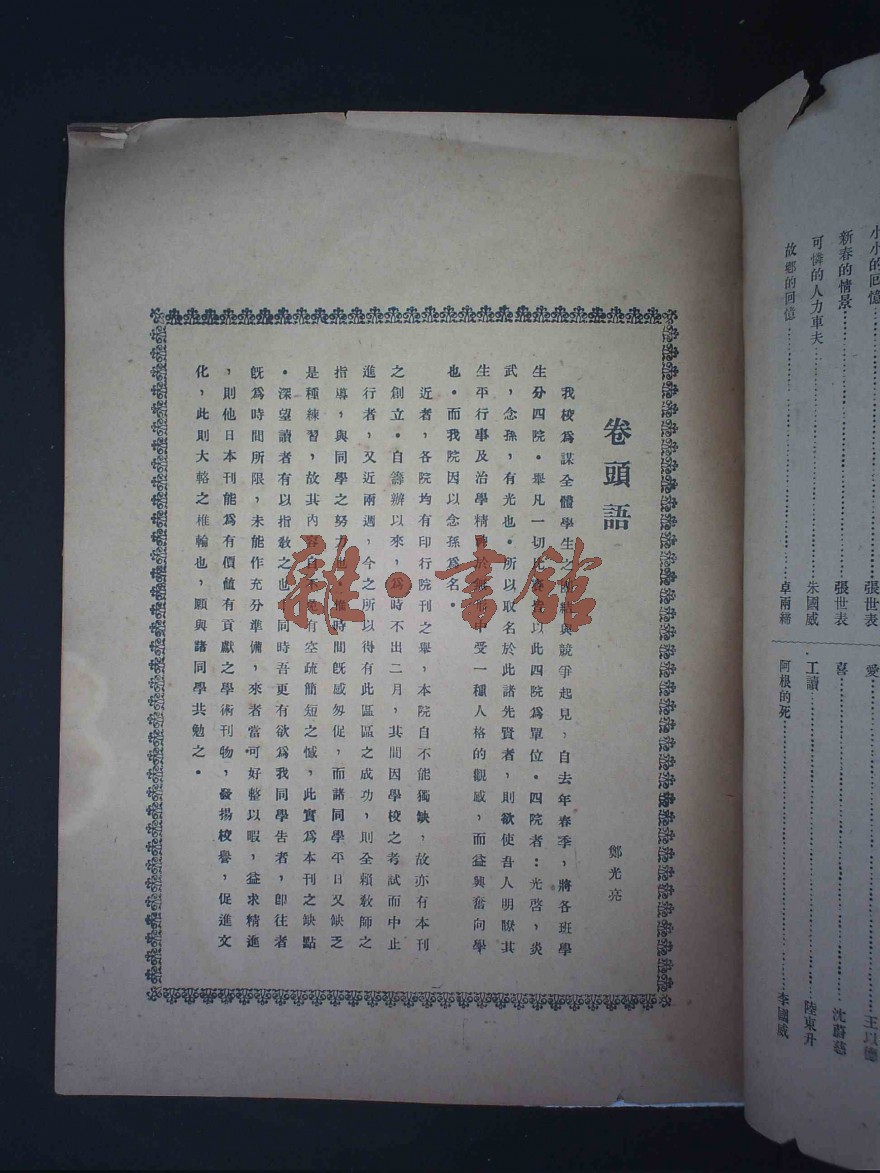 小小的回憶……張世表
新春的情景……張世表
可憐的人力車夫……朱國威
故鄉的回憶……卓雨締
愛……王以德
喜……沈蔚慈
工讀……陸東升
阿根的死……李國威
卷頭語
鄭光亮
我校爲謀全體學生之團結與競爭起見,自去年春季,將各班學
生分四院。舉凡一切比賽皆以此四院爲單位。四院者:光啓,炎
武,念孫,有光也。所以取名於此諸先賢者,則欲使吾人明瞭其
生平行事及治學精神於無形中受一種人格的觀感,而益興奮向學
也。而我院因以念孫爲名。
近者,各院均有印行院刊之舉,本院自不能獨缺,故亦有本刊
之創立。自籌辦以來,爲時不出二月,其間因學校之考試而中止
進行者,又近兩週,今之所以得有此區區之成功,則全賴敎師之
指導,與同學之努力也。惟時間旣感匆促,而諸同學平日又缺乏
是種練習,故其內容自不免有空疏簡短之憾,此實爲本刊之缺點
。深望讀者有以指敎之也。同時吾更有欲爲我同學告者,卽往者
旣爲時間所限,未能作充分準備,來者當可好整以暇,益求精進
,則他日本刊能爲有價值有貢獻之學術刊物,發揚校譽,促進文
化,此則大輅之椎輪也,願與諸同學共勉之。
雜·書館